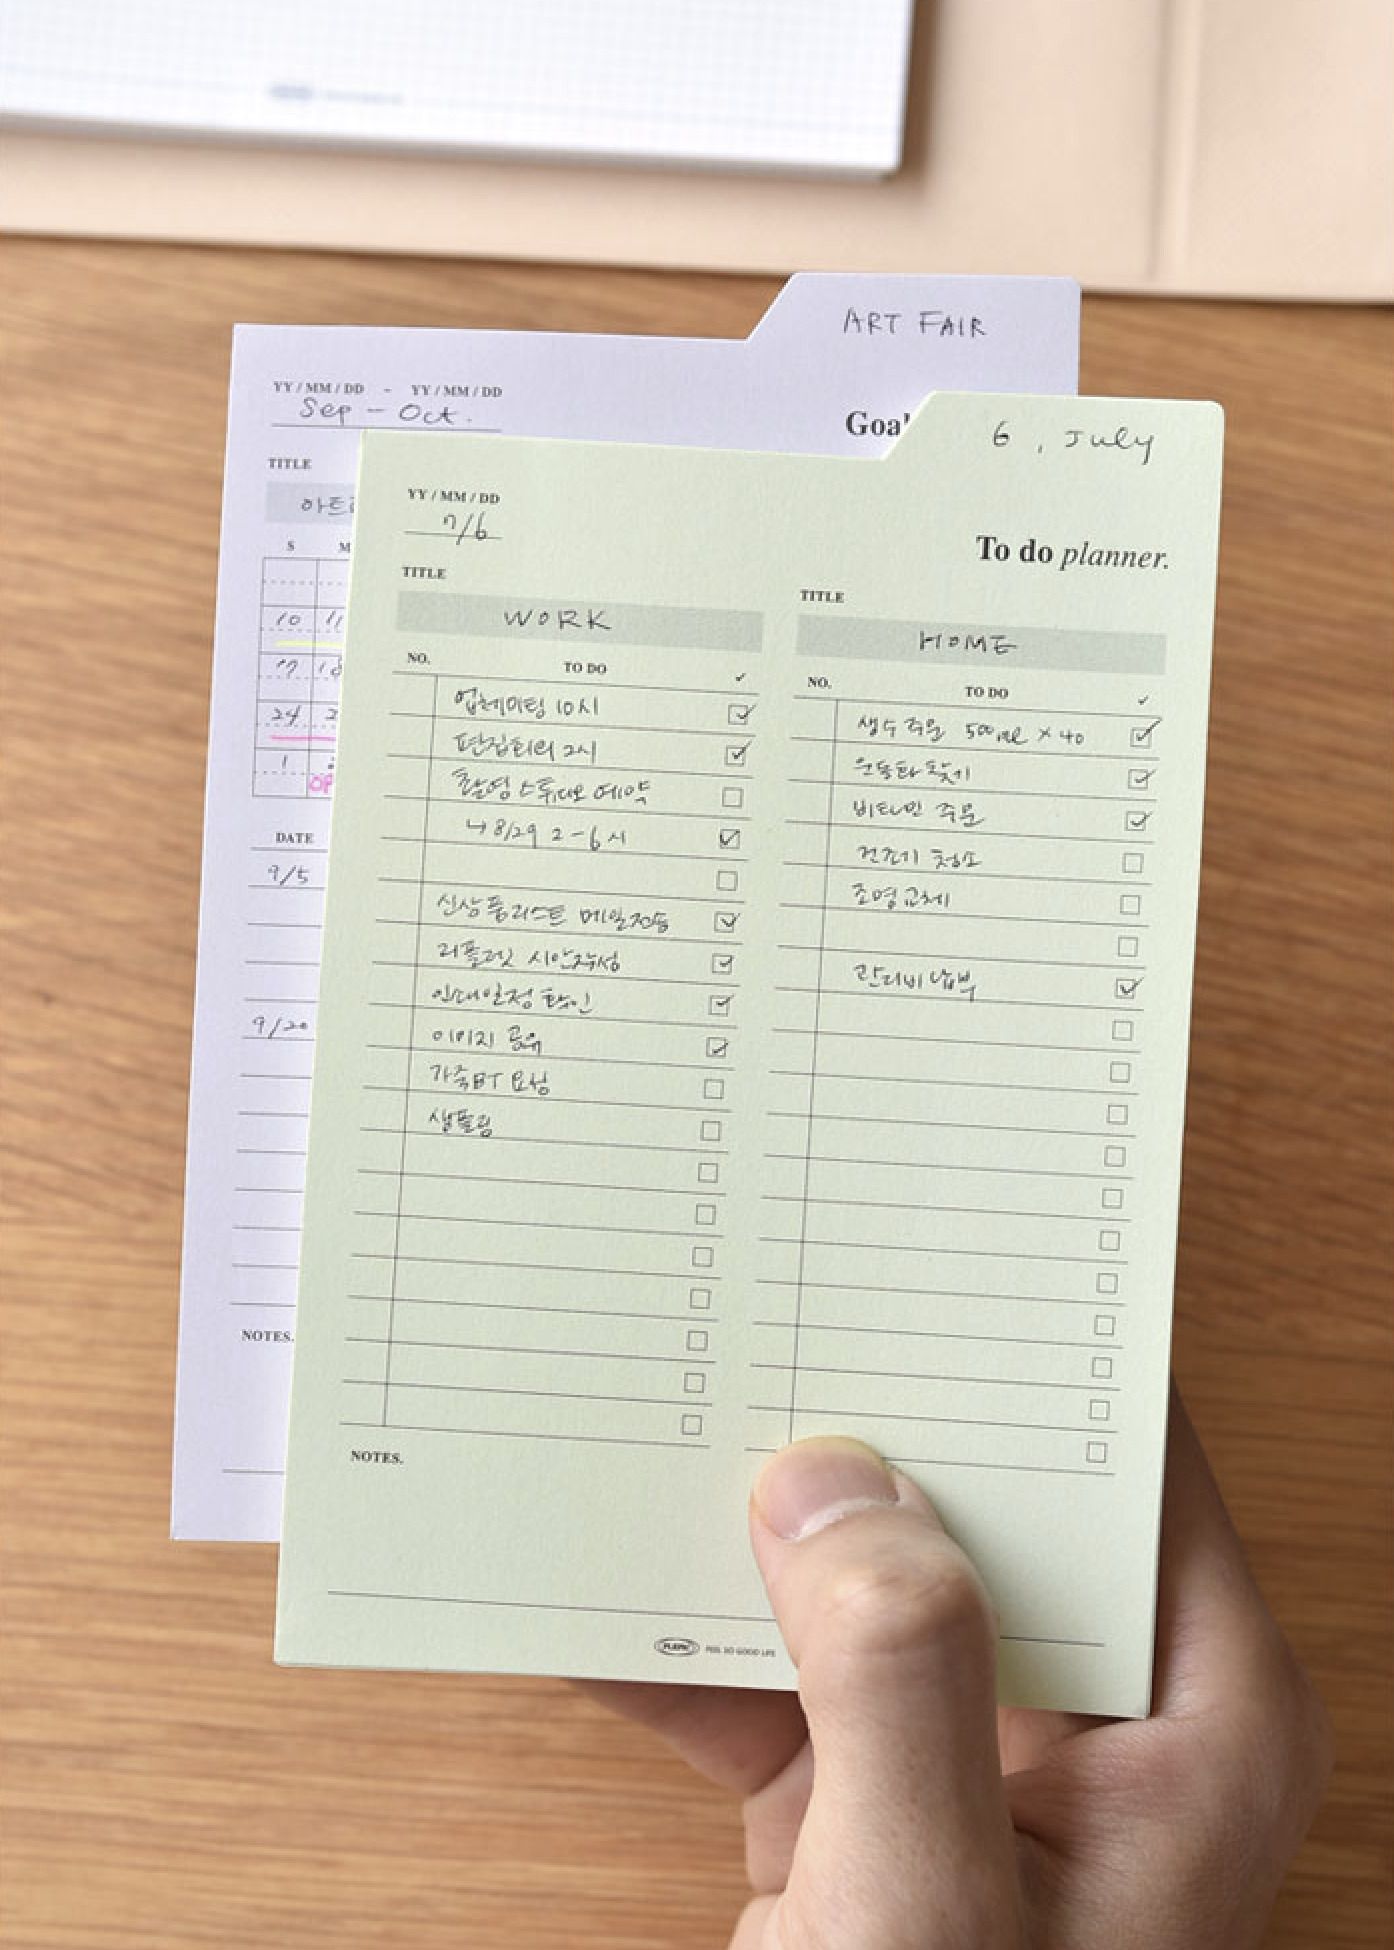 ART FAIR
YY / MM / DD - YY / MM / DD
Sep - Oct.
Goal
TITLE
아트
S M
10 11
17 18
24 2
1
OP
DATE
9/5
9/20
NOTES.
6, July
YY / MM / DD
7/6
To do planner.
TITLE
WORK
NO. TO DO ✓
업체미팅 10시
편집회의 2시
촬영 스튜디오 예약
↳ 8/29 2-6시
신상품리스트 메일전송
리플렛 시안작성
임대일정 확인
이미지 공유
가죽BT 요청
샘플링
NOTES.
TITLE
HOME
NO. TO DO ✓
생수 주문 500ml × 40
운동화 찾기
비타민 주문
건조기 청소
조명교체
관리비 납부
PLEPIC FEEL SO GOOD LIFE